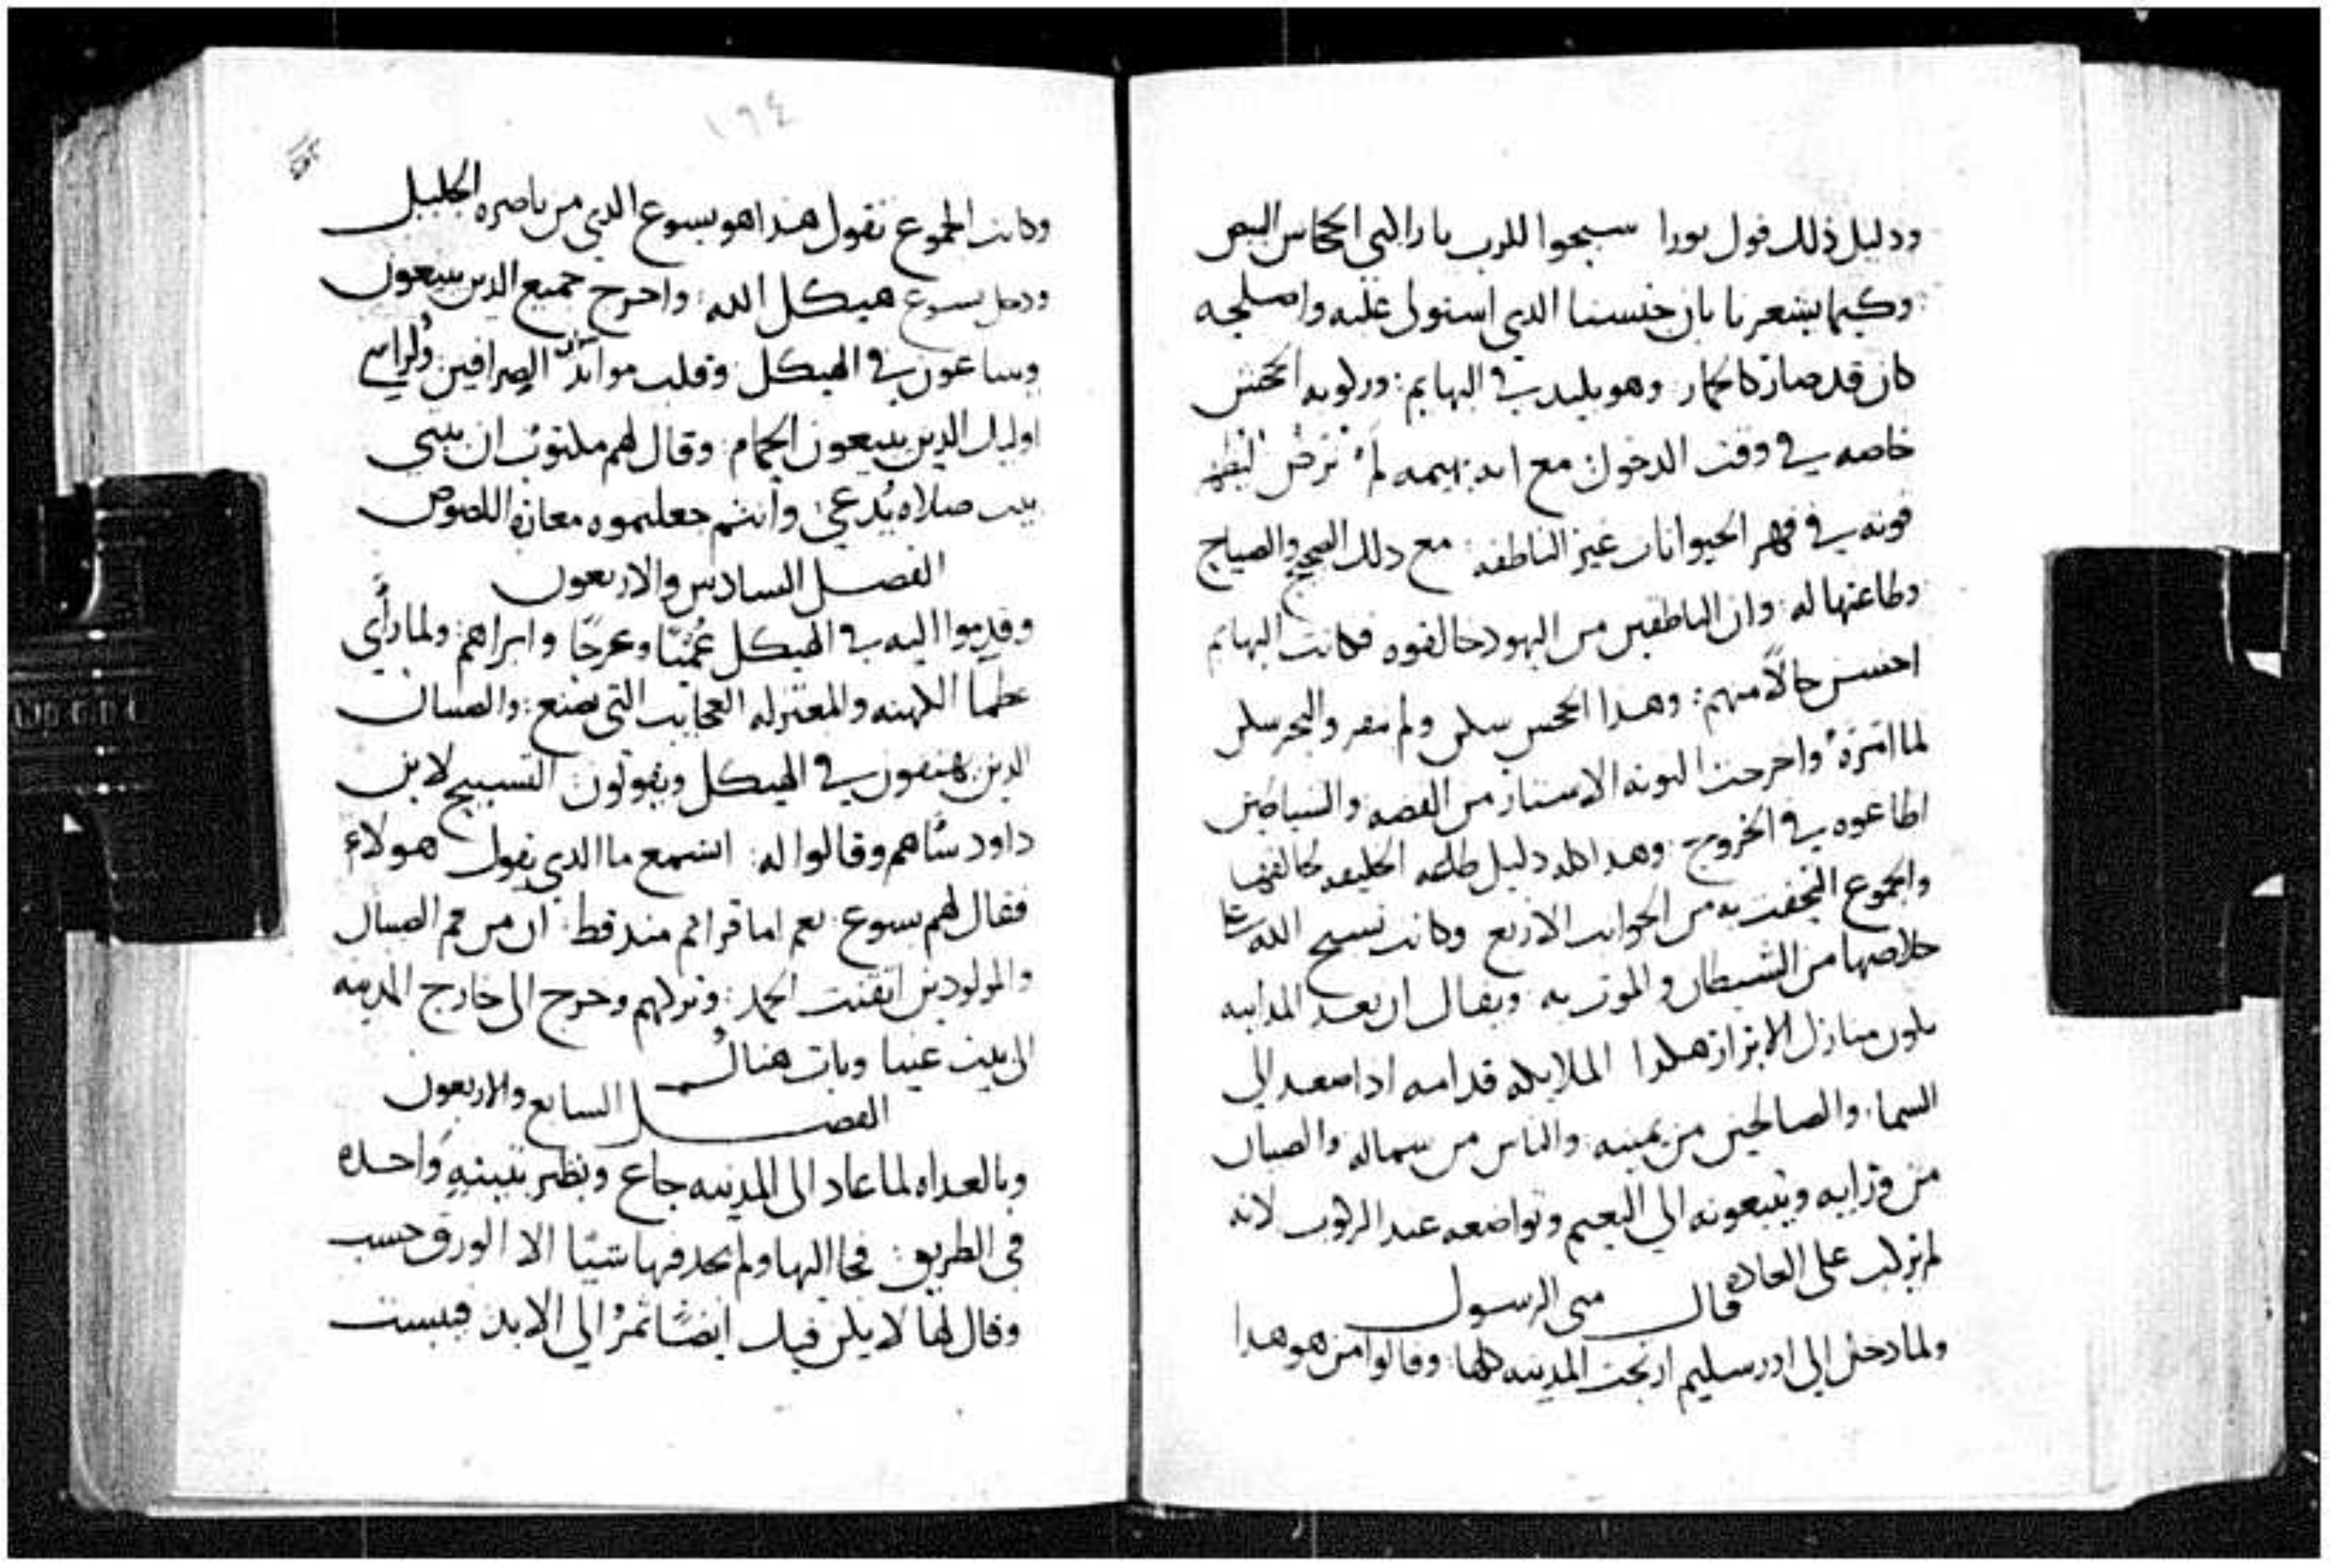 ودليل ذلك قول بورا سبحوا للرب ياراكبي الجحاش البيض
وكيما يشعرنا بان جنسنا الدي استولى عليه واصلحه
كان قد صار كالحمار وهو بليد في البهايم وركوبه الجحش
خاصه في وقت الدخول مع انه بهيمه لم ترض ليظهر
قوته في قهر الحيوانات غير الناطقه مع دلك الضجيج والصياح
وطاعتها له وان الناطقين من اليهود خالفوه فكانت البهايم
احسن حالًا منهم وهدا الجحش سكن ولم ينفر والبحر سكن
لما امره واخرجت النونه الاستار من الفضه والشياطين
اطاعوه في الخروج وهدا كله دليل طاعه الخليقه لخالقها
والجموع التحفت به من الجوانب الاربع وكانت تسبح الله على
خلاصها من الشيطان والموت به ويقال ان بعد المدابيه
يكون منازل الابرار هكدا الملايكه قدامه ادا صعد الى
السما والصالحين من يمينه والناس من شماله والصبيان
من ورايه ويتبعونه الى النعيم وتواضعه عند الركوب لانه
لم يركب على العاده قال متى الرسول
ولما دخل الى اورسليم ارتجت المدينه كلها وقالوا من هو هدا
١٦٤
وكانت الجموع تقول هدا هو يسوع الدي من ناصره الجليل
ودخل يسوع هيكل الله واخرج جميع الدين يبيعون
ويبتاعون في الهيكل وقلب موائد الصرافين وكراسي
اوليك الدين يبيعون الحمام وقال لهم مكتوب ان بيتي
بيت صلاه يُدعى وانتم جعلتموه مغارة اللصوص
الفصل السادس والاربعون
وقدموا اليه في الهيكل عُميًا وعرجًا وابراهم ولما رأى
عظما الكهنه والمعتزله العجايب التي يصنع والصبيان
الدين يهتفون في الهيكل ويقولون التسبيح لابن
داود سًاهم وقالوا له اتسمع ما الدي يقول هولاء
فقال لهم يسوع نعم اما قراتم مند قط ان من فم الصبيان
والمولودين اتقنت الحمد وتركهم وخرج الى خارج المدينه
الى بيت عنيا وبات هناك
الفصل السابع والاربعون
وبالغداه لما عاد الى المدينه جاع ونظر بتينهٍ واحده
في الطريق فجا اليها ولم يجد فيها شيًا الا الورق حسب
وقال لها لا يكن فيك ايضًا ثمرُ الى الابد فيبست